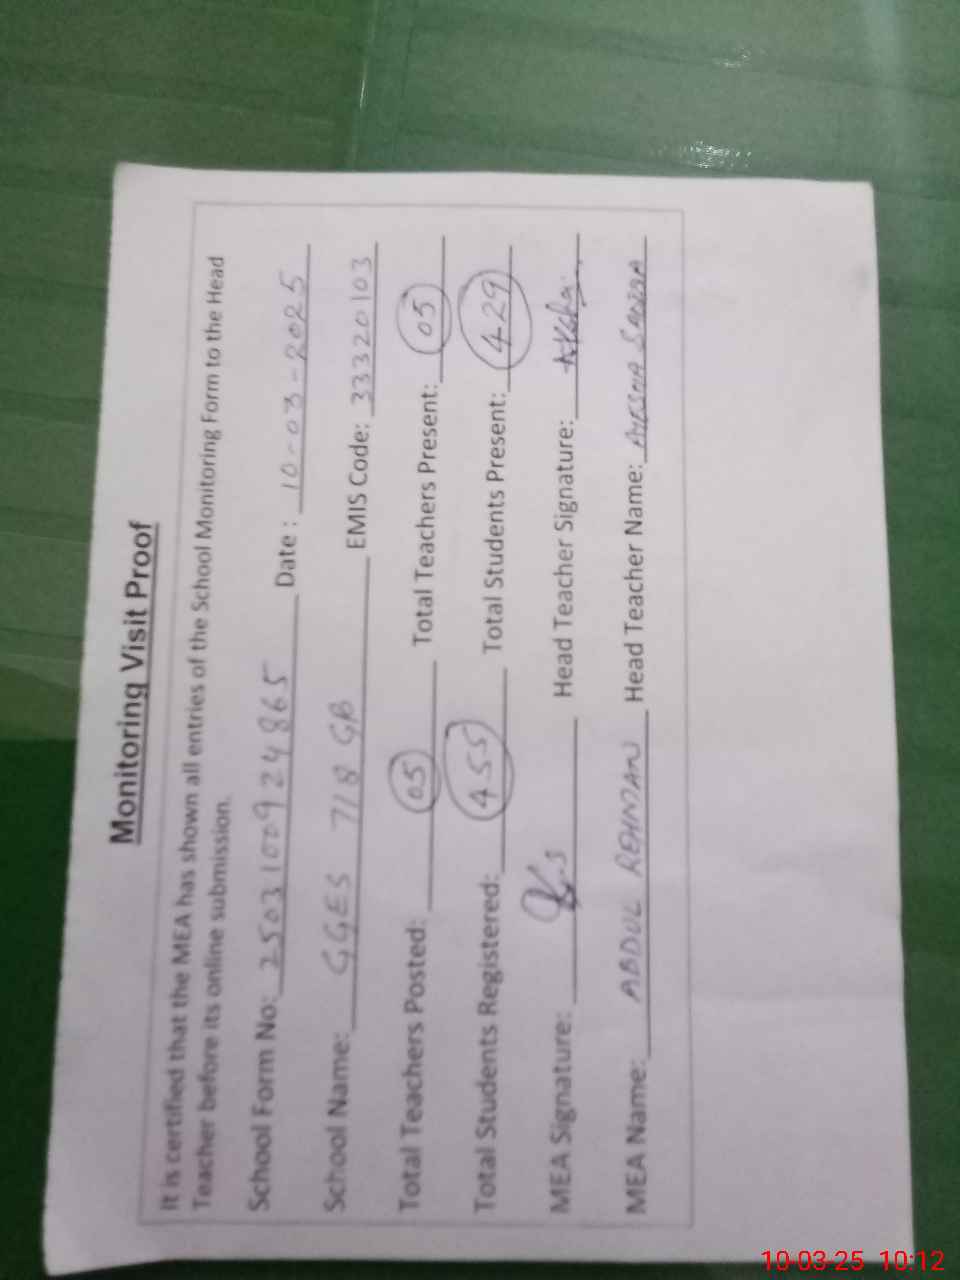 Monitoring Visit Proof
It is certified that the MEA has shown all entries of the School Monitoring Form to the Head
Teacher before its online submission.
School Form No: 2503100924865 Date : 10-03-2025
School Name: GGES 718 GB EMIS Code: 33320103
Total Teachers Posted: 05 Total Teachers Present: 05
Total Students Registered: 455 Total Students Present: 429
MEA Signature: Head Teacher Signature:
MEA Name: ABDUL REHMAN Head Teacher Name:
10-03-25 10:12